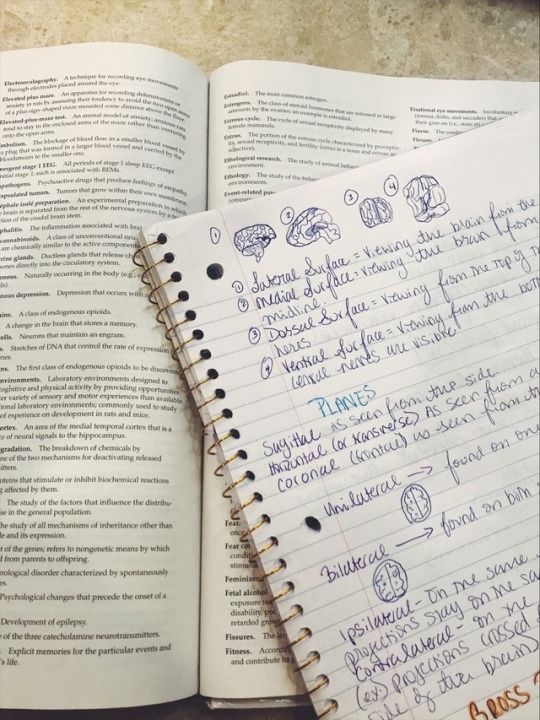 Electrooculography. A technique for recording eye movements
through electrodes placed around the eye.
Elevated plus maze. An apparatus for recording defensiveness or
anxiety in rats by assessing their tendency to avoid the two open arms
of a plus sign-shaped maze mounted some distance above the floor.
Elevated-plus-maze test. An animal model of anxiety; anxious rats
tend to stay in the enclosed arms of the maze rather than venturing
onto the open arms.
The blockage of blood flow in a smaller blood vessel by
a plug that was formed in a larger blood vessel and carried by the
bloodstream to the smaller one.
stage 1 EEG. All periods of stage 1 sleep EEG, except
initial stage 1; each is associated with REMs.
Psychoactive drugs that produce feelings of
tumors. Tumors that grow within their own membrane.
isolé preparation. An experimental preparation in which
brain is separated from the rest of the nervous system by a
of the caudal brain stem.
The inflammation associated with
A class of
are chemically similar to the active
glands. Ductless glands that release
directly into the circulatory system.
Naturally occurring in the body (e.g.,
depression. Depression that occurs with
A class of endogenous opioids.
A change in the brain that stores a memory.
Neurons that maintain an engram.
Stretches of DNA that control the rate of expression
The first class of endogenous opioids to be discovered
Laboratory environments designed to
cognitive and physical activity by providing opportunities
variety of sensory and motor experiences than available
laboratory environments; commonly used to study
of experience on development in rats and mice.
An area of the medial temporal cortex that is a
of neural signals to the hippocampus.
The breakdown of chemicals by
one of the two mechanisms for deactivating released
that stimulate or inhibit biochemical reactions
affected by them.
The study of the factors that influence the distribu-
in the general population.
The study of all mechanisms of inheritance other than
and its expression.
of the genes; refers to nongenetic means by which
from parents to offspring.
disorder characterized by spontaneously
Psychological changes that precede the onset of a
Development of epilepsy.
of the three catecholamine neurotransmitters.
Explicit memories for the particular events and
life.
Estradiol. The most common estrogen.
Estrogens. The class of steroid hormones that are released in large
amounts by the ovaries; an example is estradiol.
Estrous cycle. The cycle of sexual receptivity displayed by many
female mammals.
Estrus. The portion of the estrous cycle characterized by
sexual receptivity, and fertility
Ethological research. The study of animal
environments.
Ethology. The study of the
environment.
Event-related
Fear.
Fear
Feminizes
Fetal alcohol
exposure
disability,
retarded
Fissures. The
Fitness. According
and contribute its
Fixational eye movements. Involuntary
(tremor, drifts, and saccades) that
① ② ③ ④
① Lateral Surface = viewing the brain from the
② medial surface = viewing the brain from
midline.
③ Dorsal Surface = viewing from the top of
④ Ventral Surface = viewing from the
nerves are visible!
PLANES
Sagittal as seen from the side.
Horizontal (or transverse) As seen from
coronal (frontal) as seen from
Unilateral → found on one
Bilateral → found on both
Ipsilateral - On the same
projections stay on the
contralateral - on the
(ex) projections crossed
side of the brain